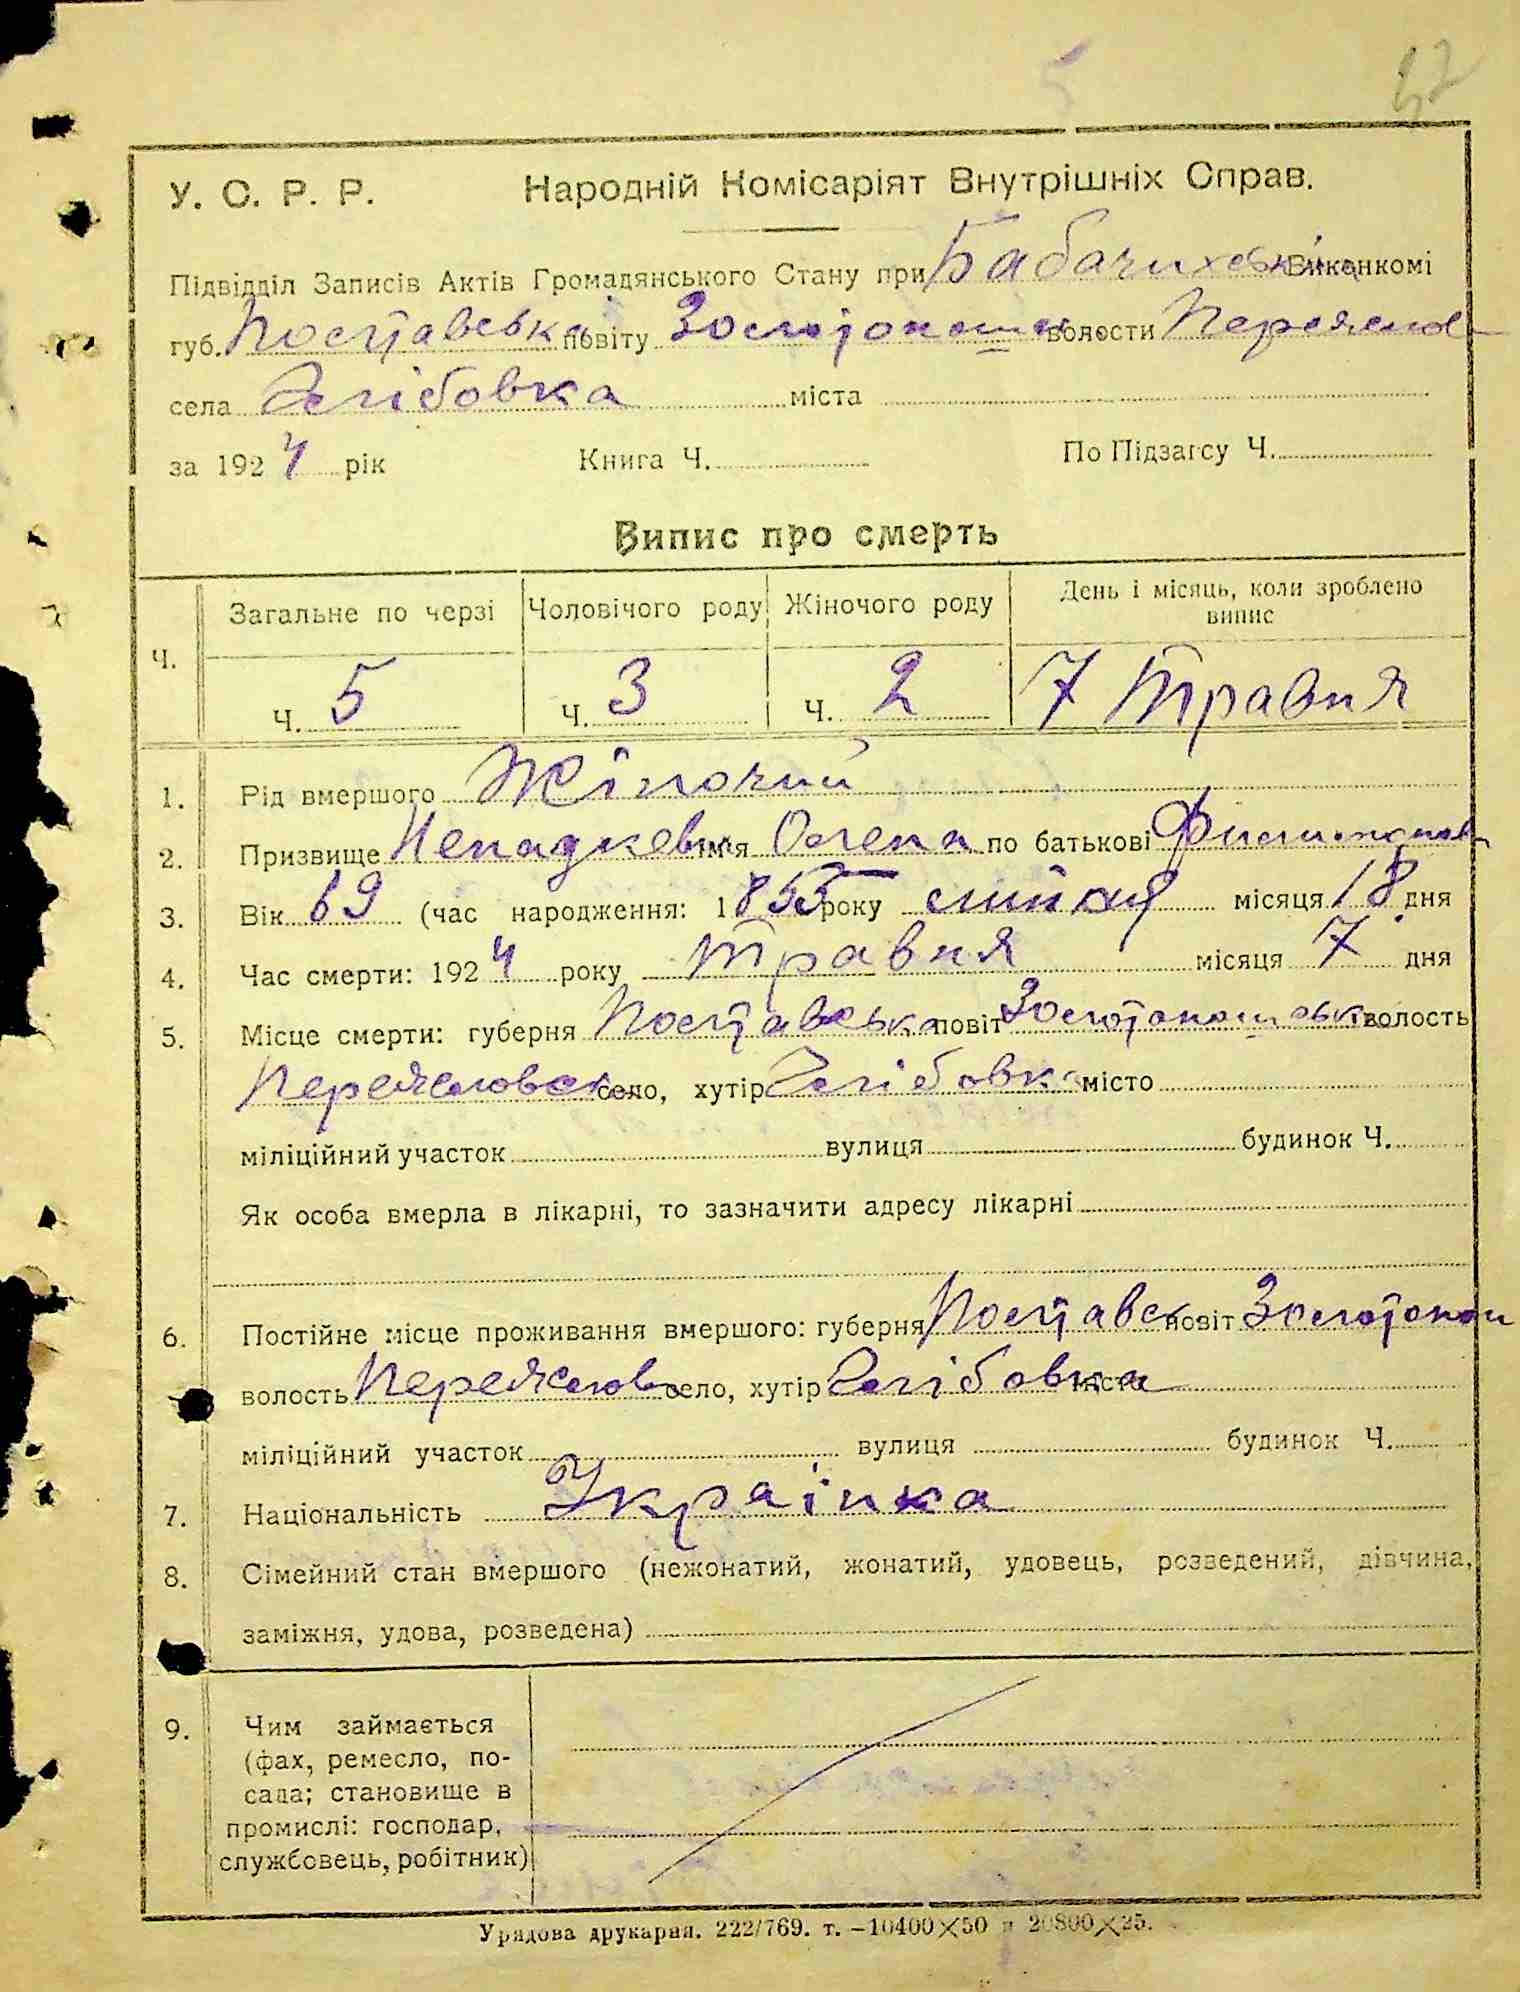 5
52
У. С. Р. Р. Народній Комісаріят Внутрішніх Справ.
Підвідділ Записів Актів Громадянського Стану при Виконкомі
губ. Полтавська повіту Золотонош волости Переяслов
села Глібовка міста
за 1924 рік Книга Ч. По Підзагсу Ч.
Випис про смерть
Ч. Загальне по черзі Чоловічого роду Жіночого роду День і місяць, коли зроблено випис
Ч. 5 Ч. 3 Ч. 2 7 Травня
1. Рід вмершого Жіночий
2. Призвище імя Олена по батькові
3. Вік 69 (час народження: 1855 року місяця 18 дня
4. Час смерти: 1924 року Травня місяця 7 дня
5. Місце смерти: губерня Полтавська повіт Золотоношська волость
Переясловск село, хутір Глібовка місто
міліційний участок вулиця будинок Ч.
Як особа вмерла в лікарні, то зазначити адресу лікарні
6. Постійне місце проживання вмершого: губерня Полтавск повіт Золотонош
волость Переяслов село, хутір Глібовка місто
міліційний участок вулиця будинок Ч.
7. Національність Українка
8. Сімейний стан вмершого (нежонатий, жонатий, удовець, розведений, дівчина,
заміжня, удова, розведена)
9. Чим займається
(фах, ремесло, по-
сада; становище в
промислі: господар,
службовець, робітник)
Урядова друкарня. 222/769. т. —10400×50 и 20800×25.